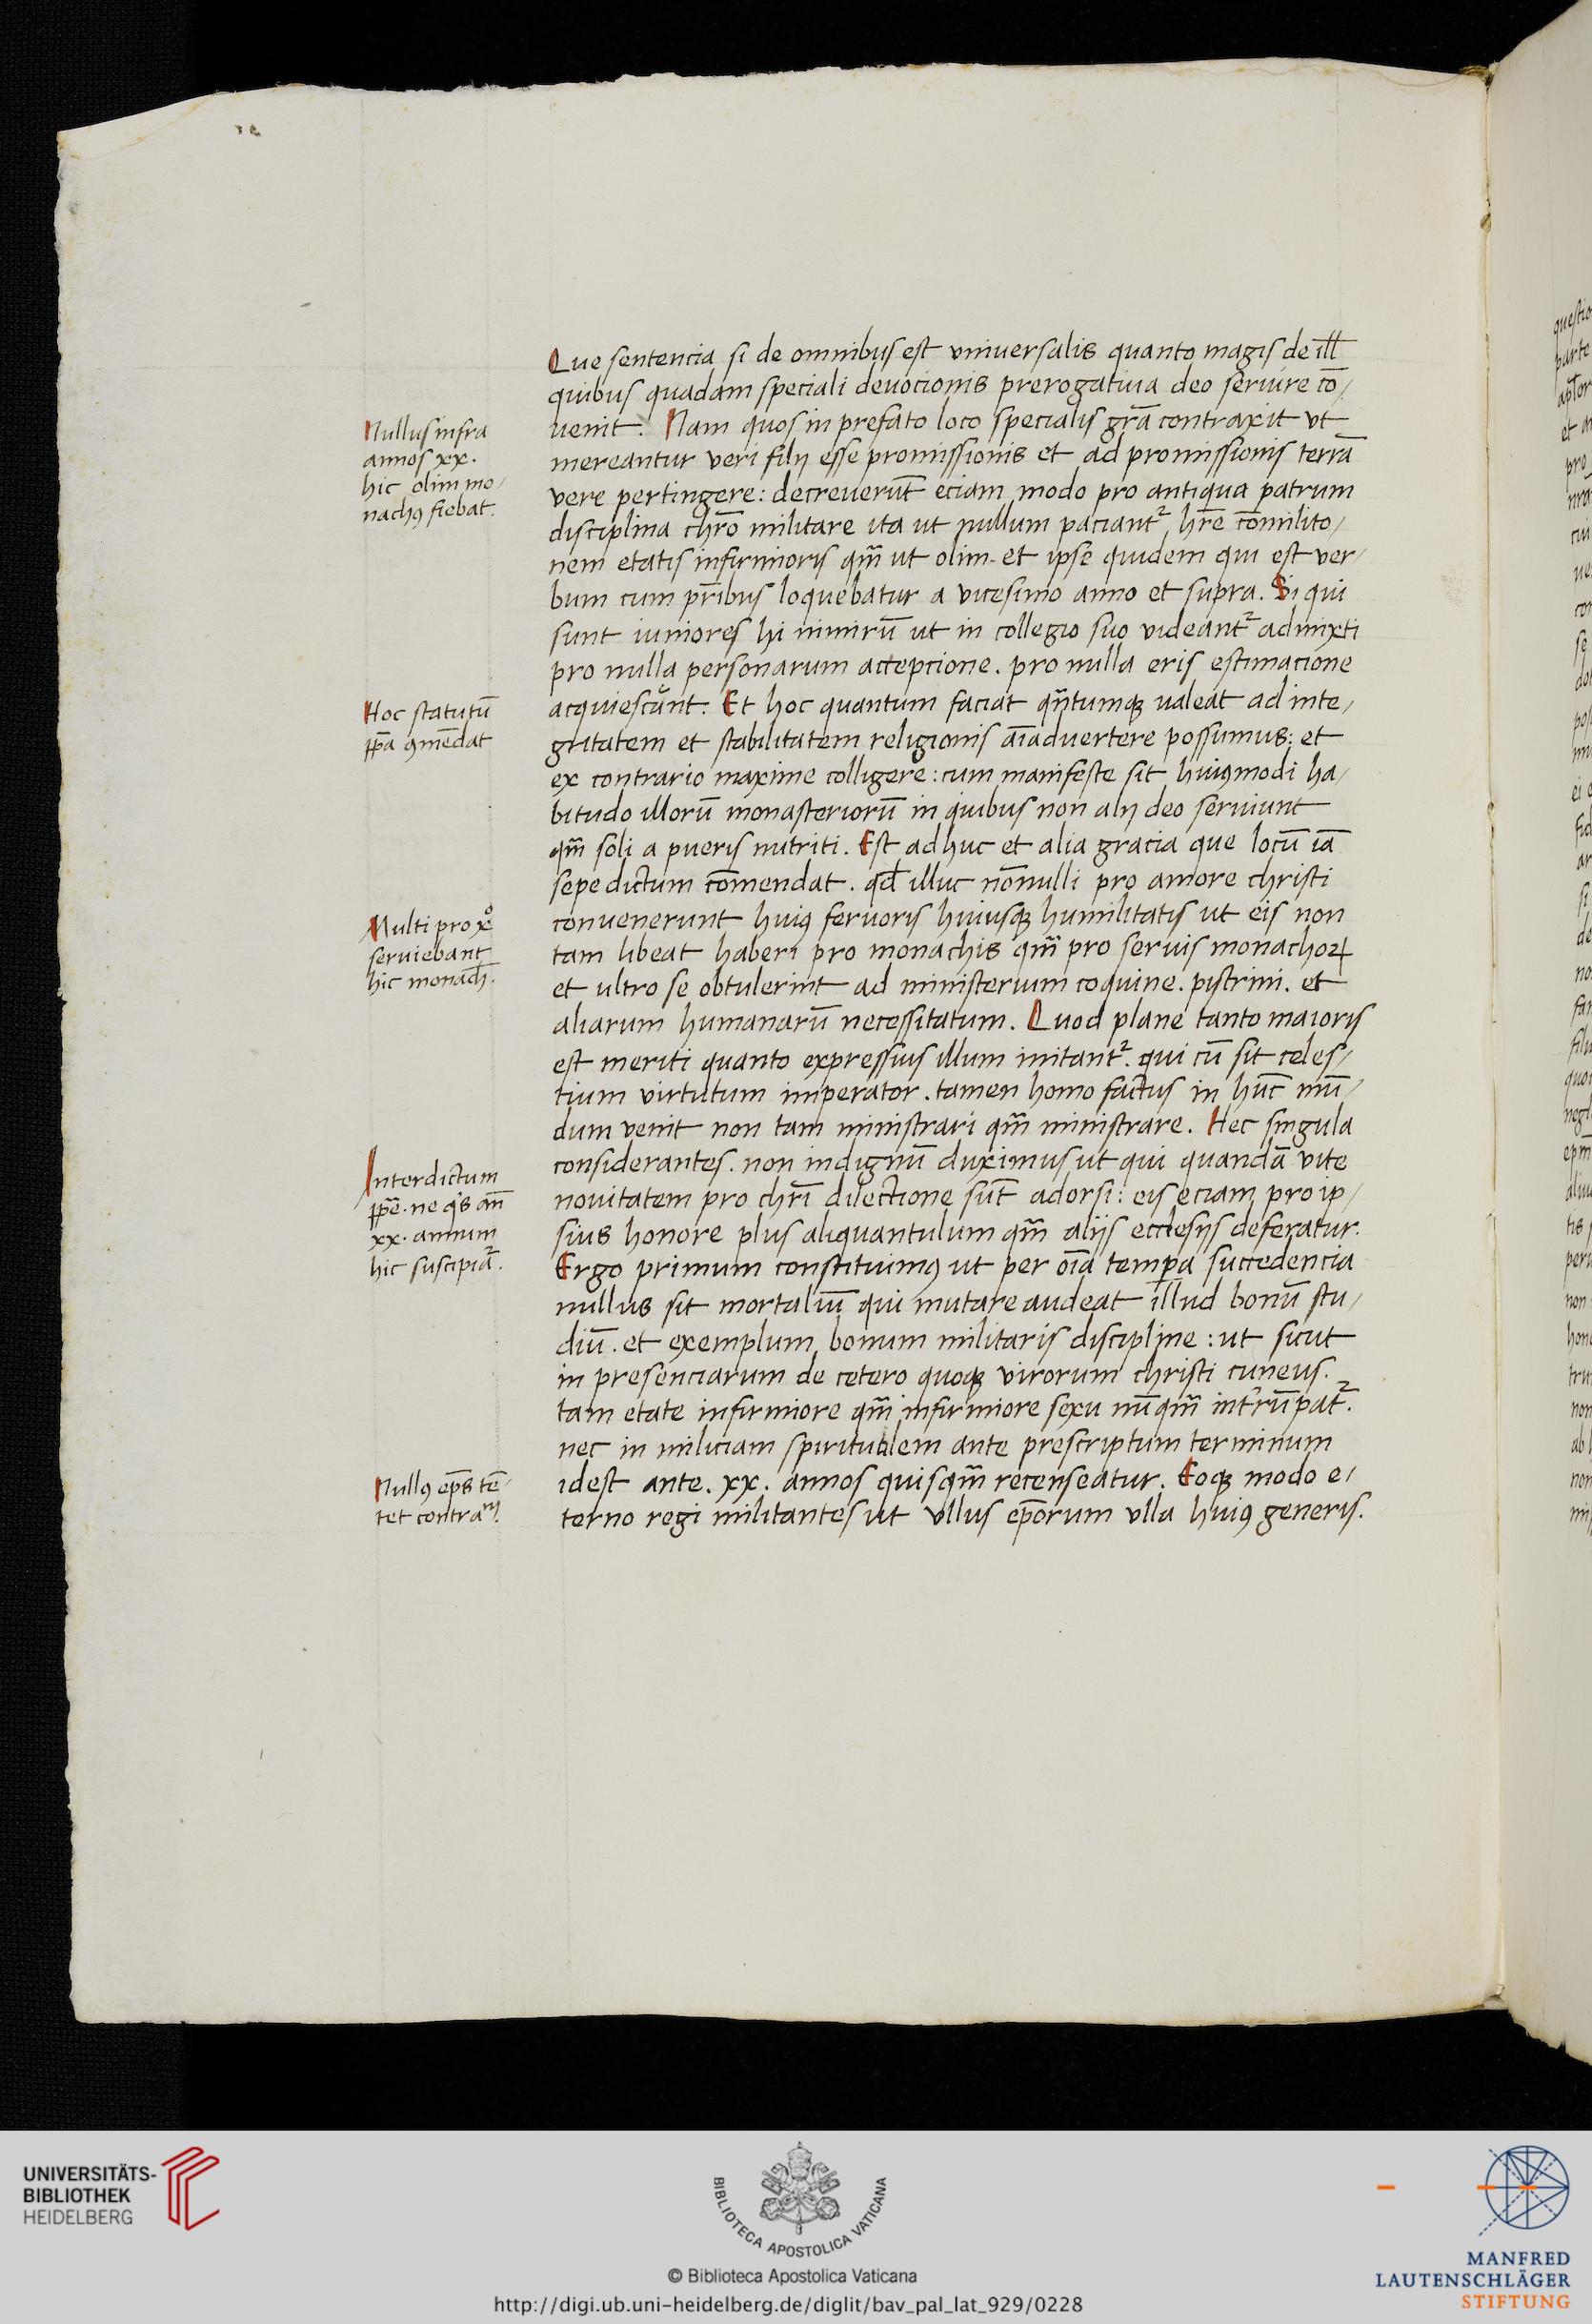 Que sentencia si de omnibus est vniuersalis quanto magis de ill̅
quibus quadam speciali deuocionis prerogatiua deo seruire co̅/
uenit. Nam quos in prefato loco specialis gr̅a contraxit vt
mereantur veri filij esse promissionis et ad promissionis terra̅
vere pertingere: decreueru̅t eciam modo pro antiqua patrum
disciplina chr̅o militare ita ut nullum paciantᷣ hr̅e co̅milito/
nem etatis infirmioris qm̅ ut olim. et ipse quidem qui est ver/
bum cum pr̅ibus loquebatur a vicesimo anno et supra. Si qui
sunt iuniores hi nimiru̅ ut in collegio suo videantᷣ admixti
pro nulla personarum accepcione. pro nulla eris estimacione
acquiescunt. Et hoc quantum faciat qn̅tumqꝫ ualeat ad inte/
gritatem et stabilitatem religionis ai̅aduertere possumus: et
ex contrario maxime colligere: cum manifeste sit huiꝰmodi ha/
bitudo illoru̅ monasterioru̅ in quibus non alij deo seruiunt
qm̅ soli a pueris nutriti. Est adhuc et alia gracia que locu̅ ia̅
sepe dictum co̅mendat. qd̅ illuc no̅nulli pro amore christi
conuenerunt huiꝰ feruoris huiusqꝫ humilitatis ut eis non
tam libeat haberi pro monachis qm̅ pro seruis monachoꝝ
et ultro se obtulerint ad ministerium coquine. pistrini. et
aliarum humanaru̅ necessitatum. Quod plane tanto maioris
est meriti quanto expressius illum imitantᷣ. qui cu̅ sit celes/
tium virtutum imperator. tamen homo factus in hu̅c mu̅/
dum venit non tam ministrari qm̅ ministrare. Hec singula
considerantes. non indignu̅ duximus ut qui quanda̅ vite
nouitatem pro chri̅ dilectione su̅t adorsi: eis eciam pro ip/
sius honore plus aliquantulum qm̅ alijs ecclesijs deferatur.
Ergo primum constituimꝰ ut per oi̅a temp̲a succedencia
nullus sit mortaliu̅ qui mutare audeat illud bonu̅ stu/
diu̅. et exemplum bonum militaris discipline: ut sicut
in presenciarum de cetero quoqꝫ virorum christi cuneus.
tam etate infirmiore qm̅ infirmiore sexu nu̅qm̅ int'ru̅patᷣ.
nec in miliciam spiritualem ante prescriptum terminum
idest ante. xx. annos quisqm̅ recenseatur. Eoqꝫ modo e/
terno regi militantes ut vllus ep̅orum vlla huiꝰ generis.
Nullus infra
annos xx.
hic olim mo/
nachꝰ fiebat.
Hoc statutu̅
p̅p̅a ꝯme̅dat
Multi pro xͦ
seruiebant
hic monach̅.
Interdictum
p̅p̅e. ne qͥs an̅
xx. annum
hic suscipiaᷣ.
Nullꝰ ep̅s te̅/
tet contraᵐ.
UNIVERSITÄTS-
BIBLIOTHEK
HEIDELBERG
BIBLIOTECA APOSTOLICA VATICANA
© Biblioteca Apostolica Vaticana
http://digi.ub.uni-heidelberg.de/diglit/bav_pal_lat_929/0228
MANFRED
LAUTENSCHLÄGER
STIFTUNG